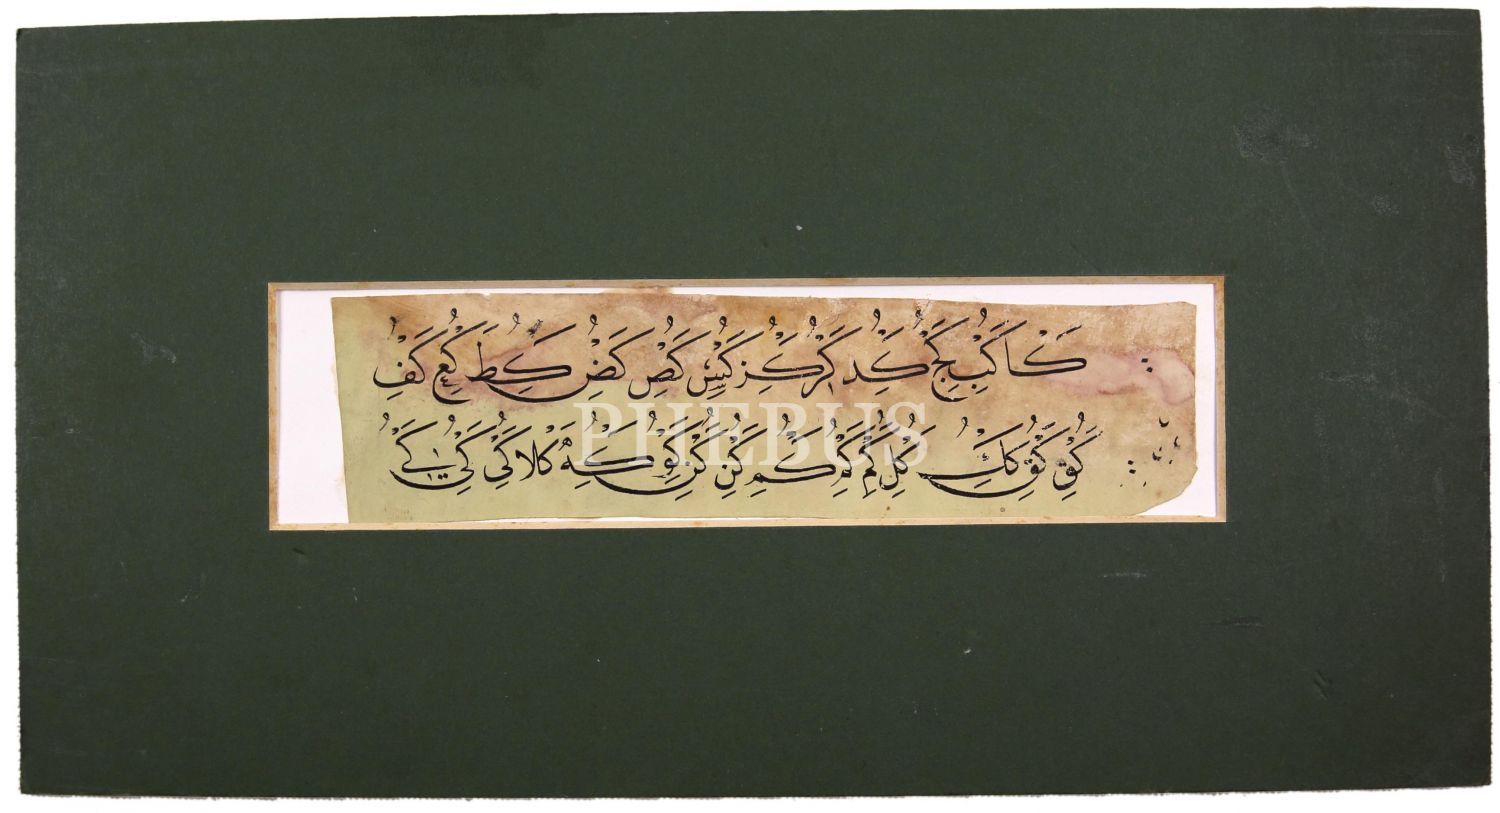 كَا كَبْ كَجْ كَدْ كَرْ كَزْ كَسْ كَصْ كَضْ كَطْ كَعْ كَفْ
كُقْ كَقْ كَكْ كُلْ كَمْ كَمْ كَمْ كَنْ كَنْ كَوْ كَهْ كَلَا كَيْ كَيْ كَيْ
PHEBUS